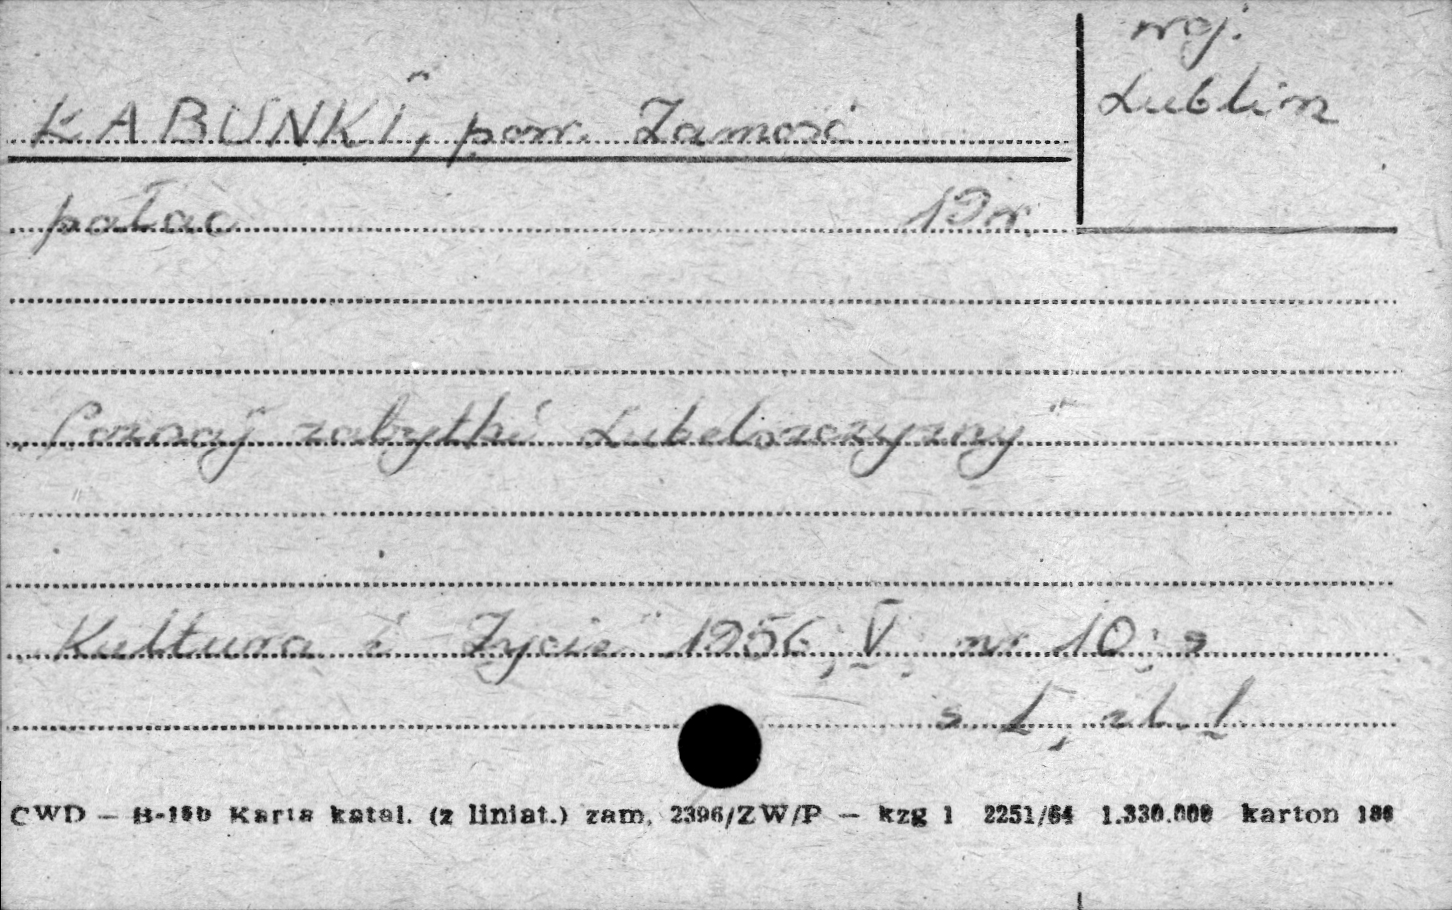 woj.
Lublin
ŁABUŃKI, pow. Zamość
pałac 19 w.
"Poznaj zabytki Lubelszczyzny"
"Kultura i Życie" 1956, V, nr 10; s
s. 1, il. 1
CWD — B-15b Karta katal. (z liniat.) zam. 2396/ZW/P — kzg 1 2251/64 1.330.000 karton